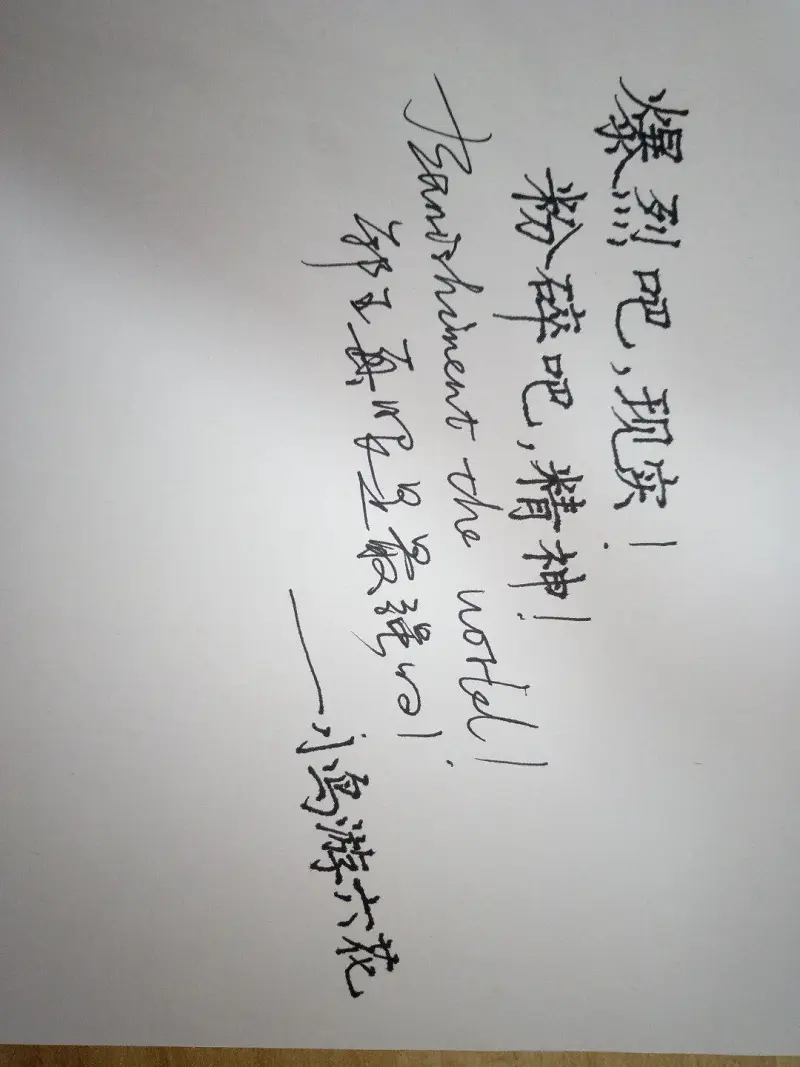 爆烈吧,现实!
粉碎吧,精神!
Banishment the world!
邪王真眼是最强的!
——小鸟游六花